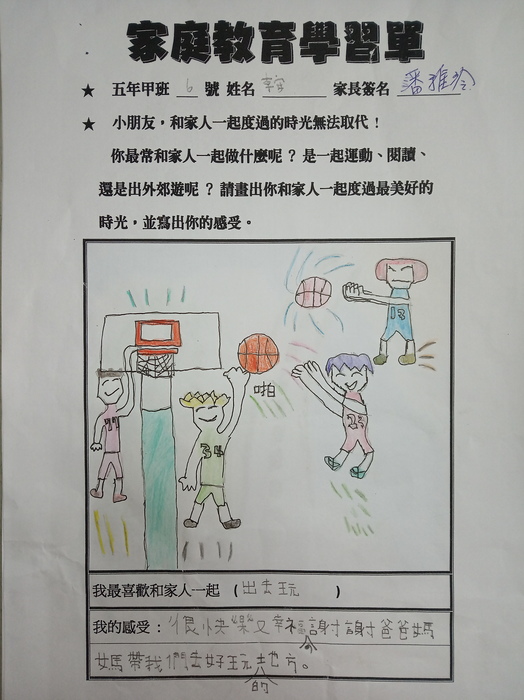 家庭教育學習單
★ 五年甲班 6 號 姓名 家長簽名 潘雅玲
★ 小朋友，和家人一起度過的時光無法取代！
你最常和家人一起做什麼呢？是一起運動、閱讀、
還是出外郊遊呢？請畫出你和家人一起度過最美好的
時光，並寫出你的感受。
13
啪
34
23
我最喜歡和家人一起 (出去玩)
我的感受：很快樂又幸福謝謝爸爸媽
媽帶我們去好玩的地方。